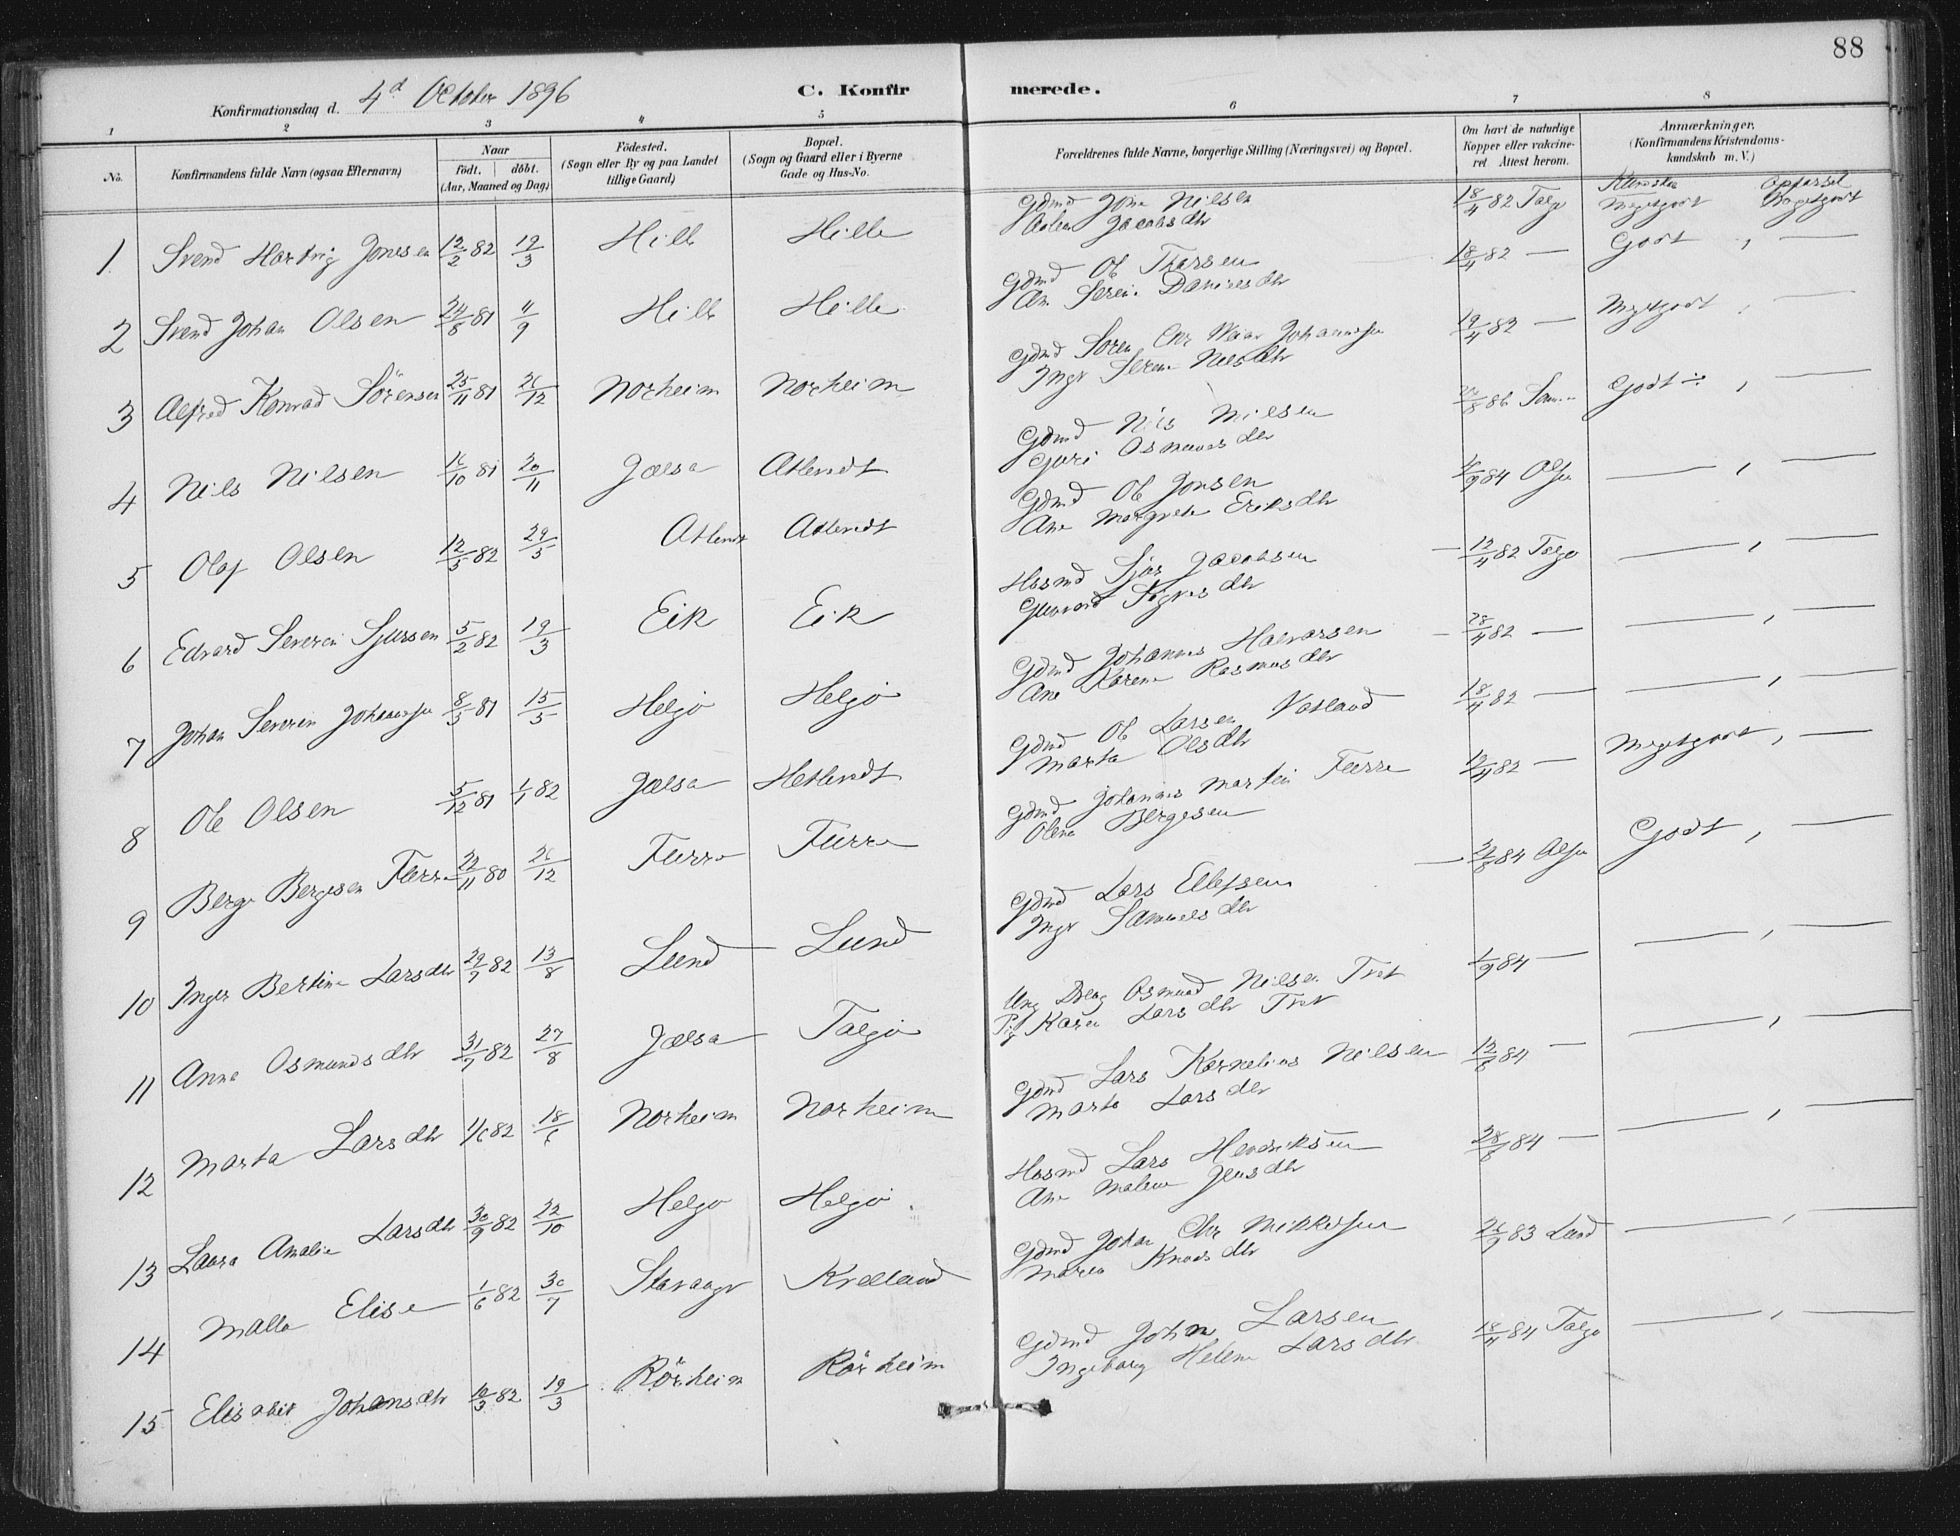 88
Konfirmationsdag d. 4d October 1896 C. Konfir merede.
1 2 3 4 5 6 7 8
No. Konfirmandens fulde Navn (ogsaa Efternavn) Naar födt. döbt. (Aar, Maaned og Dag) Födested. (Sogn eller By og paa Landet tillige Gaard) Bopæl. (Sogn og Gaard eller i Byerne Gade og Hus-No. Forældrenes fulde Navne, borgerlige Stilling (Næringsvei) og Bopæl. Om havt de naturlige Kopper eller vakcineret Attest herom. Anmærkninger. (Konfirmandens Kristendomskundskab m. V.)
1 Svend Hartvig Jonesen 12/2 82 19/3 Hille Hille Gdmd Jone Nilsen Jacobsdtr 18/4 82 Talgø Megetgodt Megetgodt
2 Svend Johan Olsen 24/8 81 11/9 Hille Hille Gdmd Ole Thorsen Serine Danielsdtr 18/4 82 — Godt , —
3 Alfred Konrad Sörensen 25/11 81 26/12 Norheim Norheim Gdmd Soren Chr Johannsen Serine Nilsdtr 19/4 82 — Megetgodt , —
4 Nils Nilsen 16/10 81 20/11 Jælsa Atlendt Gdmd Nils Nilsen Guri Osmundsdtr 86 Godt ÷ , —
5 Olaf Olsen 12/5 82 29/5 Atlendt Atlendt Gdmd Ole Jonsen Ane Margrete Eriksdtr 84 — , —
6 Edvard Severin Sjursen 5/2 82 19/3 Eik Eik Husmd Sjur Jacobsen — 12/4 82 Talgø — , —
7 Johan Severin Johannsen 8/3 81 15/5 Helgø Helgø Gdmd Johannes Halvorsen Ane Karene Rasmusdtr — 28/4 82 — — , —
8 Ole Olsen 5/12 81 1/1 82 Jælsa Hetlendt Gdmd Ole Larsen Vatland Marta Olsdtr 18/4 82 — — , —
9 Berge Bergesen Furre 22/11 80 26/12 Furre Furre Gdmd Johannes Martin Furre Olene Bergesen 82 — Megetgodt , —
10 Inger Bertine Larsdtr 29/7 82 13/8 Lund Lund Gdmd Lars Ellefsen Samuelsdtr — 84 Godt , —
11 Anna Osmundsdtr 31/7 82 27/8 Jælsa Talgø Ung Osmund Nilsen Tvet Pig Karen Larsdtr Tvet 1/9 84 — — , —
12 Marta Larsdtr 1/6 82 18/6 Norheim Norheim Gdmd Lars Kornelius Nilsen Marta Larsdtr 12/8 84 — — , —
13 Laura Amalie Larsdtr 30/9 82 22/10 Helgø Helgø Husmd Lars Hendriksen Ane Malene Jensdtr 28/8 84 — — , —
14 Malla Elise 1/6 82 30/7 Stavanger Kvelland Gdmd Johan Chr Mikkelsen Maria Knudsdtr 83 Land — , —
15 Elisabet Johansdtr 10/3 82 19/3 Rörheim Rörheim Gdmd John Larsen Ingeborg Helene Larsdtr 18/4 84 Talgø — , —